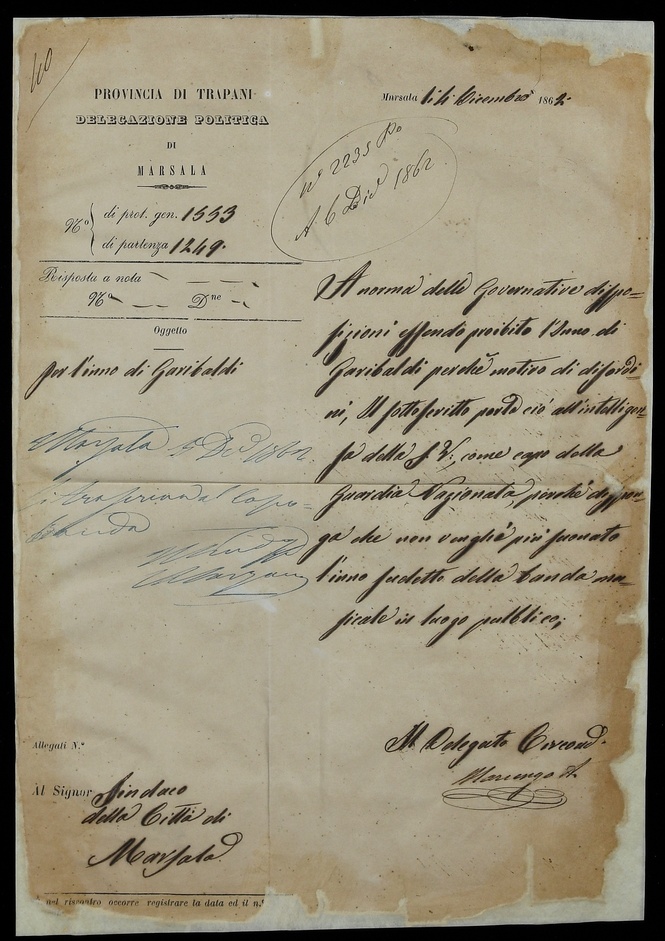 40
PROVINCIA DI TRAPANI
DELEGAZIONE POLITICA
DI
MARSALA
N.º di prot. gen. 1553
di partenza 1249.
Risposta a nota
N.º Dne
Oggetto
per l'inno di Garibaldi
Marsala 5 Dic 1862
al Capo-
Banda
Il Sindaco
Allegati N.º
Al Signor Sindaco
della Città di
Marsala
nel riscontro occorre registrare la data ed il n.º
Marsala li 4 Dicembre 1862
Nº 2235 Po
A. 6 Dice 1862
A norma delle Governative dispo=
sizioni essendo proibito l'Inno di
Garibaldi perchè motivo di disordi=
ni, Il sottoscritto porta ciò all'intelligen=
za della S. V:, come capo della
Guardia Nazionale, perchè dispon=
ga che non venghi più suonato
l'inno sudetto della banda mu=
sicale in luogo pubblico;
Il Delegato Circond.